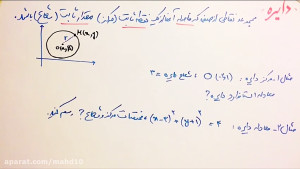 دایره: مجموعه نقاطی از صفحه که فاصله آنها از یک نقطه ثابت (مرکز) مقدار ثابت (شعاع) باشد.
M(x,y)
r
مثال ۱ـ مرکز دایره: O شعاع دایره = ۳
معادله استاندارد دایره؟
مثال ۲ـ معادله دایره: (x-۲)² + (y+۱)² = ۴ مختصات مرکز و شعاع؟ رسم کنید.
aparat.com/mahdi10